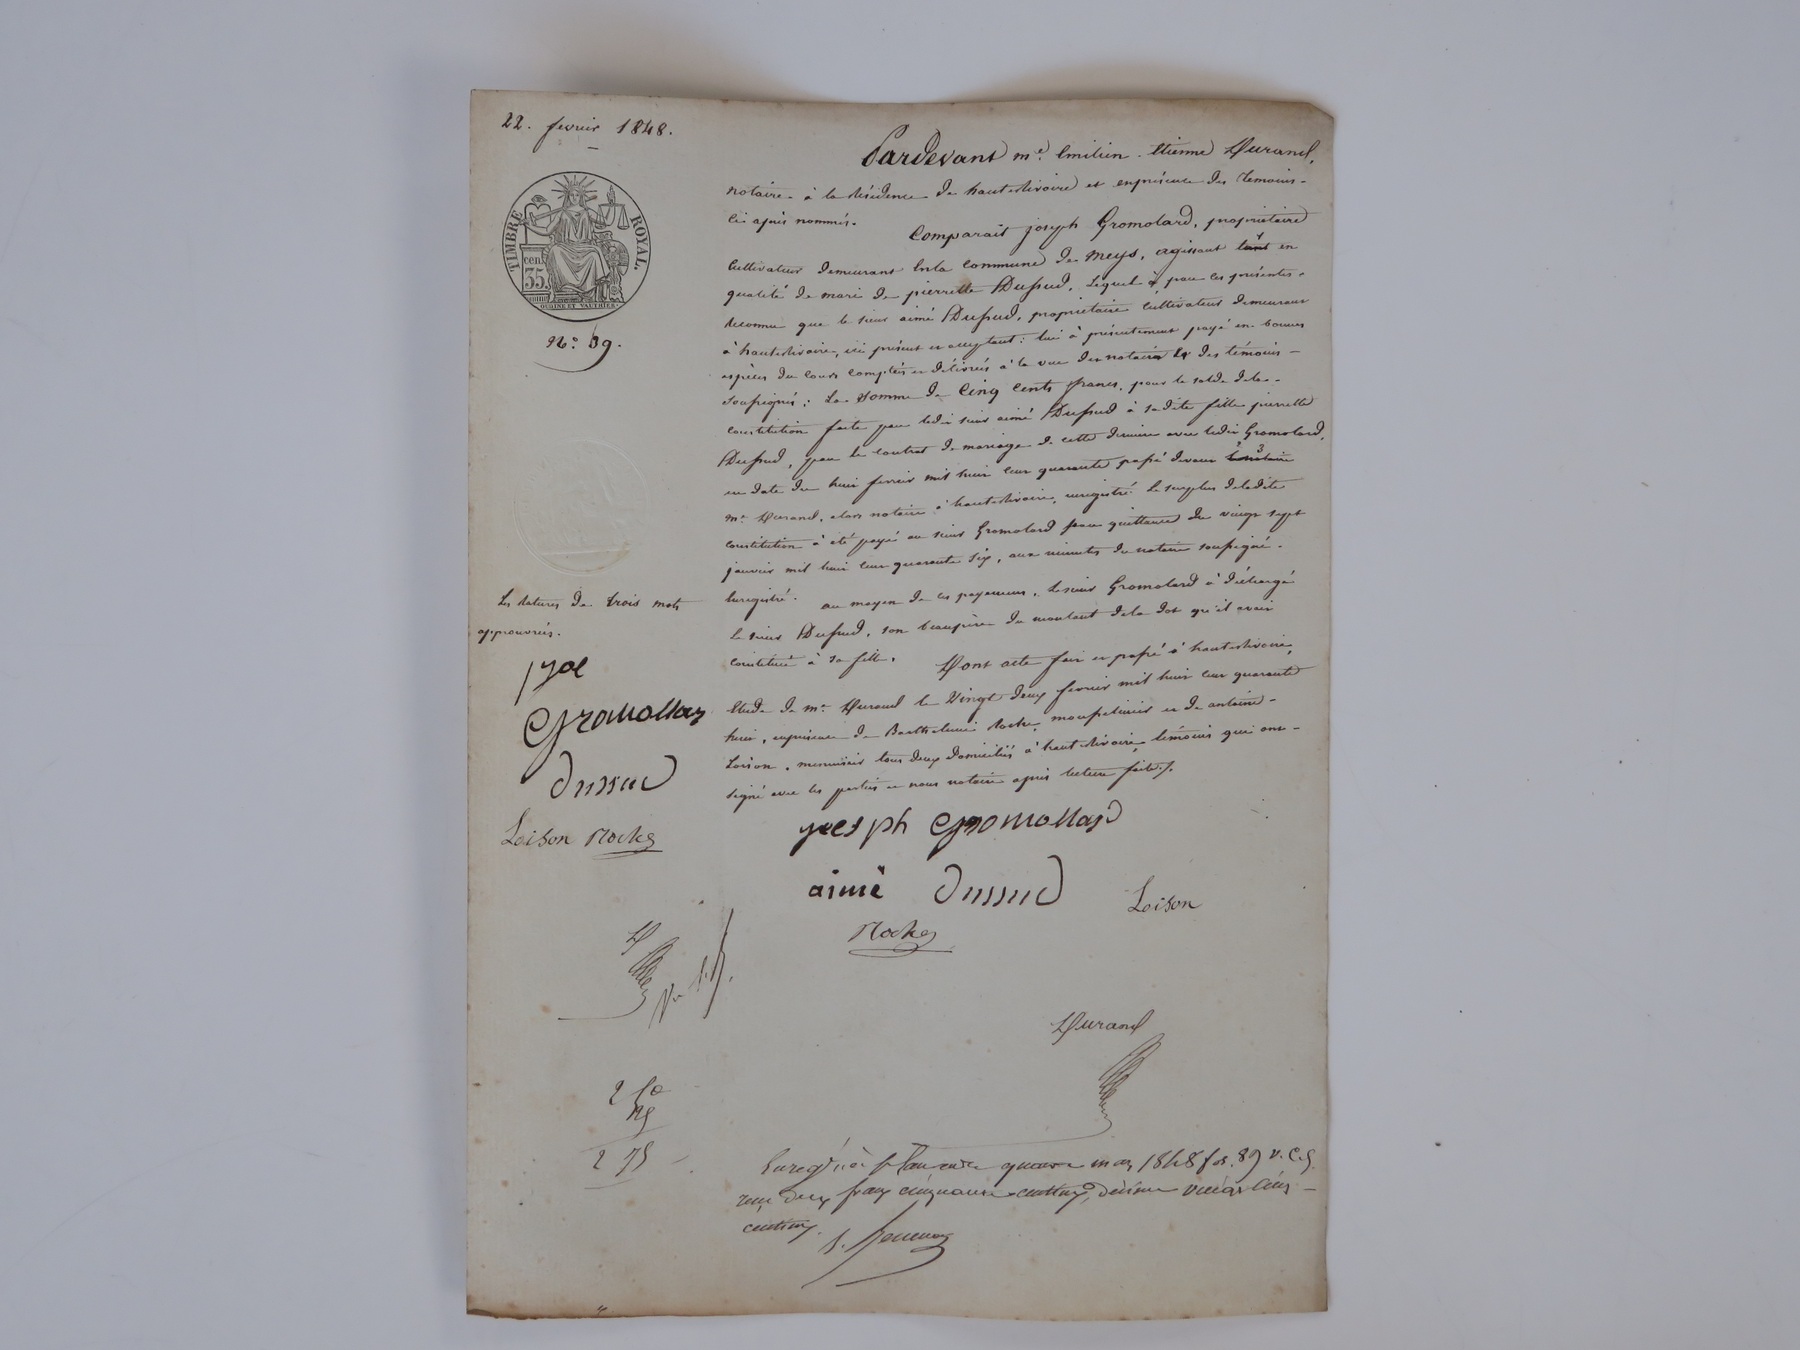 22. fevrier 1848.
TIMBRE ROYAL.
cen.
35.
N.º 59.
Pardevant m.e Emilien Etienne Durand,
notaire à la Résidence de hauterivoire et en présence des temoins
ci après nommés.
Comparait joseph Gromolard, propriétaire
cultivateur demeurant en la commune de Meys, agissant tant en
qualité de mari de pierrette Dussud, lequel a par ces présentes
reconnu que le sieur aimé Dussud, propriétaire cultivateur demeurant
à hauterivoire, ici présent et acceptant: lui à présentement payé en bonnes
espèces du cours comptées et délivrées à la vue des notaire et des témoins
soussignés: La somme de Cinq Cents francs, pour le solde de la
constitution faite par ledit sieur aimé Dussud à sadite fille pierrette
Dussud, par le contrat de mariage de cette dernière avec ledit Gromolard,
en date du huit fevrier mil huit cent quarante passé devant
m.e Durand, alors notaire à hauterivoire, enregistré. Le surplus de ladite
constitution à été payé au sieur Gromolard par quittance du vingt sept
janvier mil huit cent quarante six, aux minutes du notaire soussigné.
Enregistré. au moyen de ces payemens, le sieur Gromolard à déchargé
le sieur Dussud, son beaupère du montant de la dot qu'il avait
constituée à sa fille.
Dont acte fait et passé à hauterivoire,
Etude de m.e Durand le Vingt deux fevrier mil huit cent quarante
huit, en présence de Barthelemi Roche, et de antoine
Loison, menuisier tous deux domiciliés à hauterivoire, témoins qui ont
signé avec les parties et nous notaire après lecture faite./.
Les ratures de trois mots
approuvées.
Gromollard
Dussud
Loison Roche
joesph Gromollard
aimé Dussud
Loison
Roche
Durand
2 50
25
2 75
Enregistré à St Laurent quatre mars 1848 f.º 89 v. C. 5.
reçu deux francs cinquante centimes, décime vingt cinq
centimes.